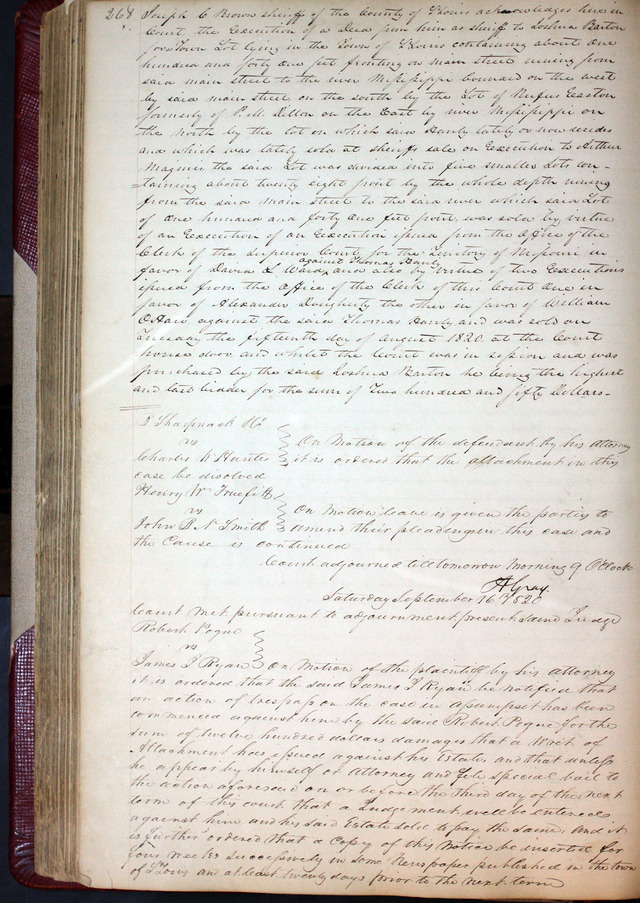 268 Joseph C Brown sheriff of the County of St Louis acknowledges here in
Court the Execution of a Deed from him as sheriff to Joshua Barton
for a Town Lot lying in the Town of St Louis containing about One
hundred and forty one feet fronting on main street runing from
said main street to the river Missisippi bounded on the west
by said main street, on the south by the Lot of Rufus Easton
formerly of P. M. Dillon on the East by river Missisippi on
the North by the lot on which said Hanly lately or now resides
and which was lately sold at sheriffs sale on Execution to Arthur
Magines the said Lot was divided into five smaller Lots con-
-taining about twenty eight front by the whole depth runing
from the said main street to the said river which said Lot
of One hundred and forty One feet front was sold by virtue
of an Execution of an Execution issued from the Office of the
Clerk of the Superior Court for the Territory of Missouri in
favor of David L Ward against Thomas Hanly and also by virtue of two Executions
issued from the Office of the Clerk of this Court one in
favor of Alexander Dougherty the other in favor of William
OHara against the said Thomas Hanly and was sold on
Tuesday the fifteenth day of August 1820 at the Court
house door and whilst the Court was in session and was
purchased by the said Joshua Barton he being the highest
and last bidder for the sum of Two hundred and fifty Dollars-
Sharpnack
vs
Charles W Hunter On Motion of the defendant by his Attorney
it is ordered that the attachment in this
case be disolved
Henry W Truefitt
vs
John R N Smith On Motion leave is given the parties to
amend their pleadings in this case and
the Cause is continued
Court adjourned till tomorrow Morning 9 OClock
A Gray
Saturday September 16th 1820
Court met pursuant to adjournment present same Judge
Robert Pogue
vs
James T Ryan On Motion of the plaintiff by his attorney
it is ordered that the said James T Ryan be notified that
an action of trespass on the case in assumpsit has been
commenced against him by the said Robert Pogue for the
sum of twelve hundred dollars damages that a Writ of
Attachment has issued against his Estate and that unless
he appear by himself or Attorney and file special bail to
the action aforesaid on or before the third day of the next
term of this court that a Judgement will be entered
against him and his said Estate sold to pay the same. And it
is further ordered that a Copy of this Notice be inserted for
four weeks successively in some Newspaper published in the town
of St Louis and at least twenty days prior to the next term